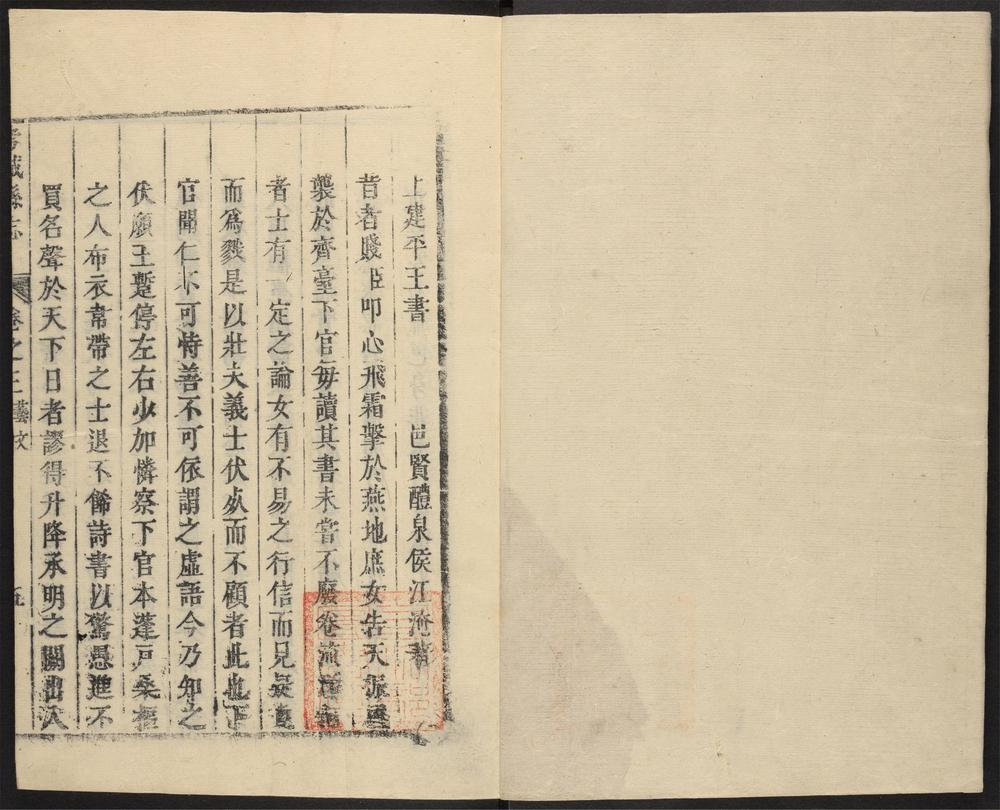 上建平王書 邑賢醴泉侯江淹著
昔者賤臣叩心飛霜擊於燕地庶女告天振風
襲於齊臺下官每讀其書未嘗不廢卷流涕
者士有一定之論女有不易之行信而見疑貞
而爲戮是以壯夫義士伏死而不顧者此也下
官聞仁不可恃善不可依謂之虛語今乃知之
伏願王蹔停左右少加憐察下官本蓬戸桑樞
之人布衣韋帶之士退不餙詩書以驚愚進不
買名聲於天下日者謬得升降承明之闕出入
城縣志 卷之 藝文 五